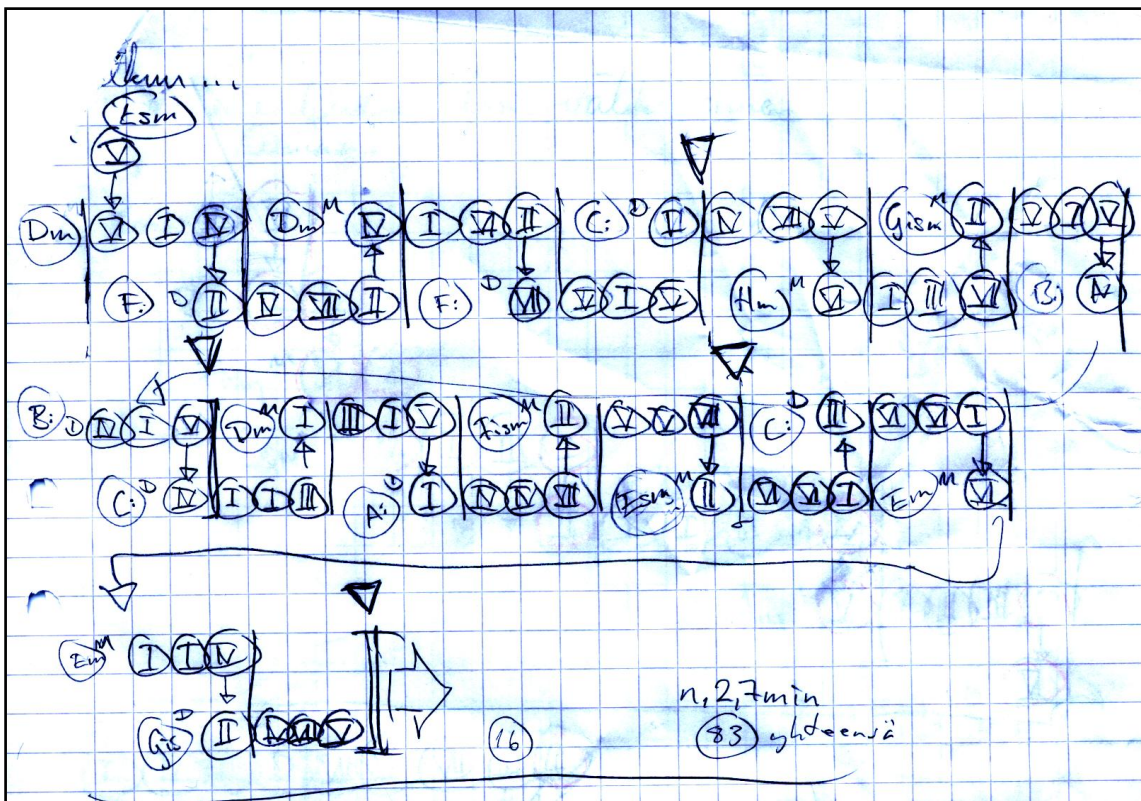 Esm
V
Dm VI I IV Dm M IV I VI II C: D II IV VII V Gism M II V I V
F: D II IV VII II F: D VII V I V Hm M VI I III VII B: IV
B: D IV I V Dm M I III I V Fism M II V V VII C: D III VI VI I
C: D IV I I III A: D I IV IV VII Esm M II VI VI I Em M VI
Em M I I IV
Gis D II
n, 2,7min
16 83 yhteensä